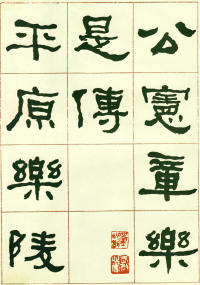 公憲章樂
是傳
平原樂陵